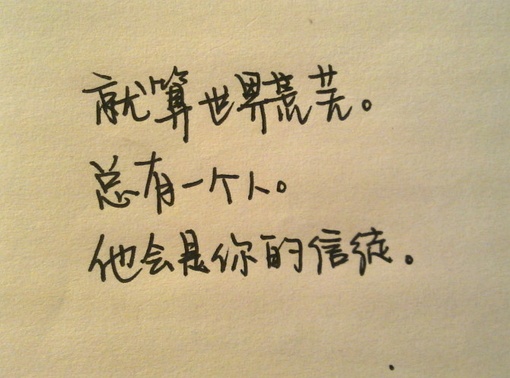 就算世界荒芜。
总有一个人。
他会是你的信徒.